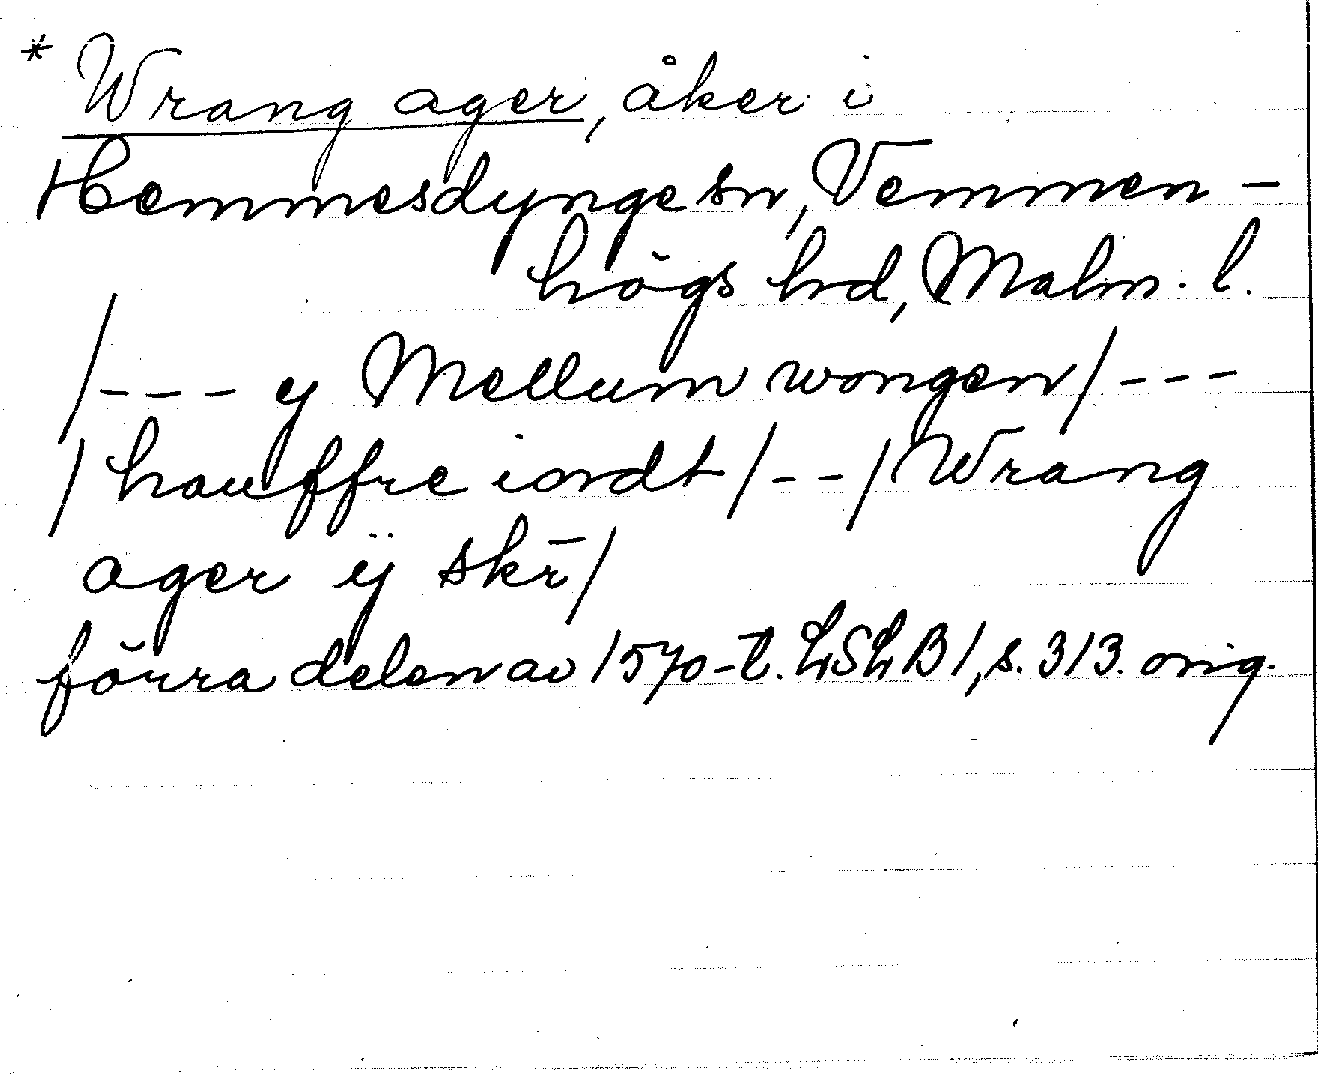 * Wrang ager, åker i
Hemmesdynge sn, Vemmen-
högs hd, Malm. l.
/--- y Mellum wongen/---
/hauffre iordt/--/Wrang
ager ij skē/
förra delen av 1570-t. LSLB 1, s. 313. orig.